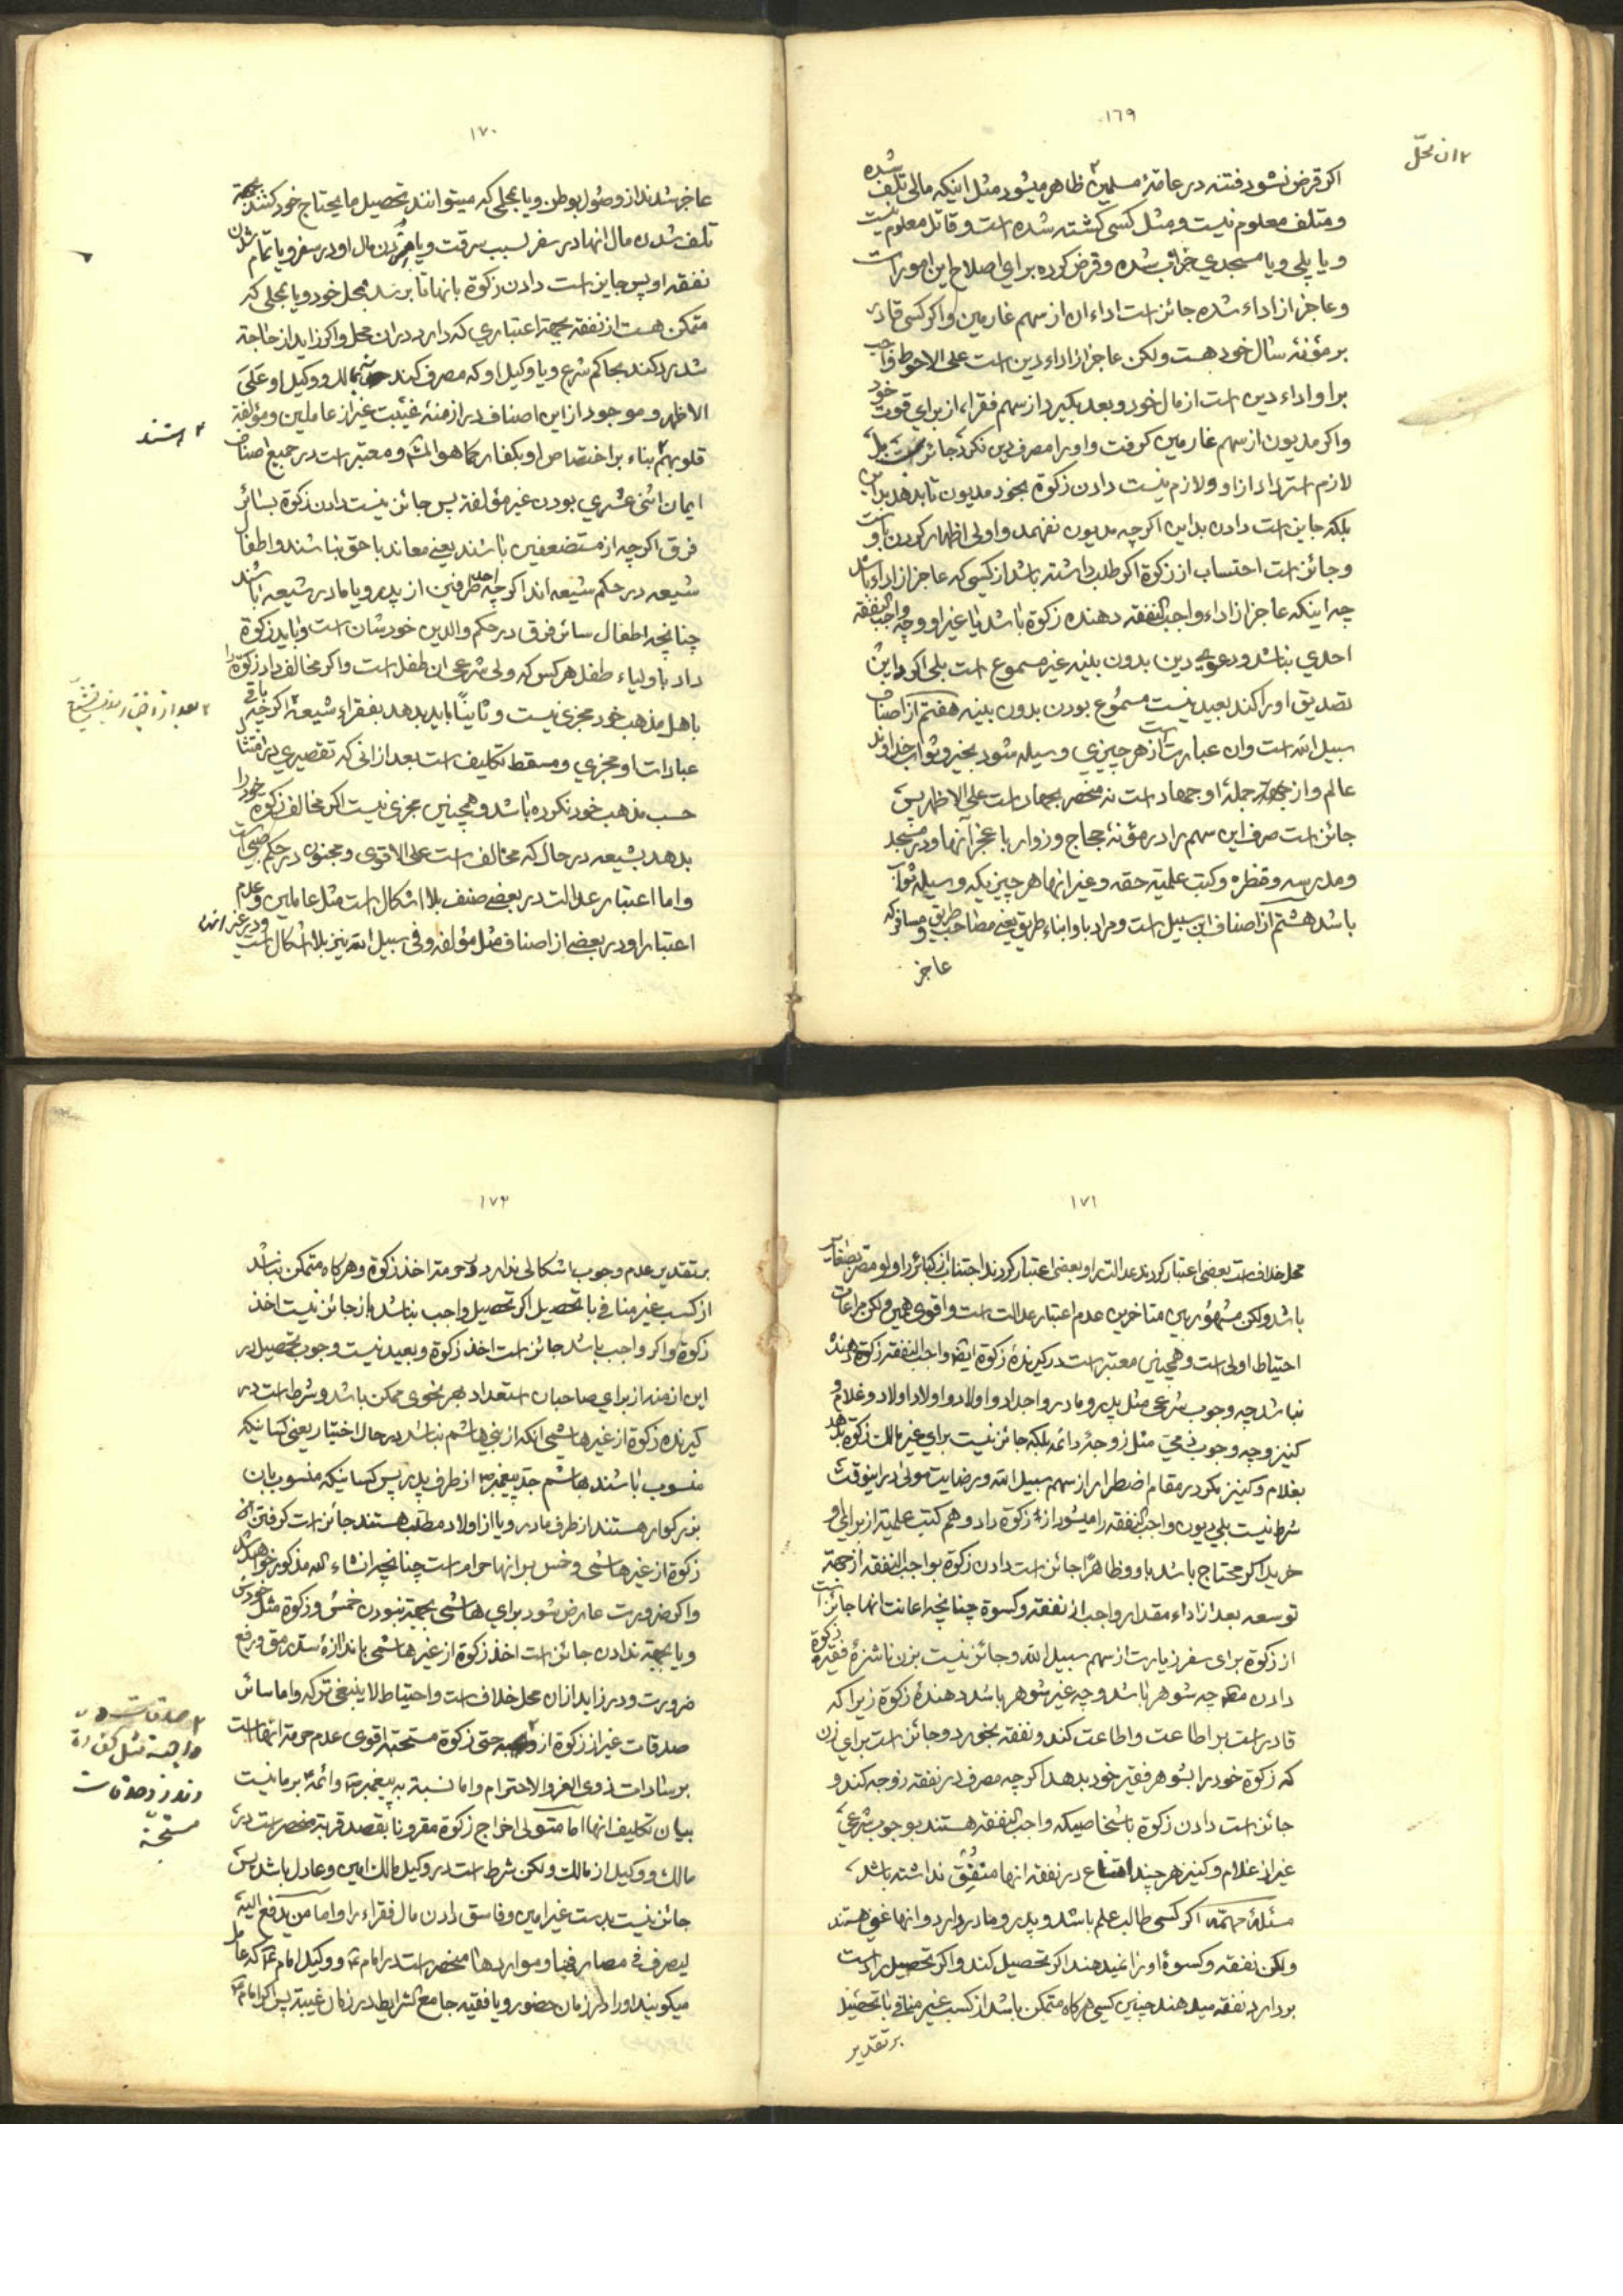 ١٦٩
ان محلّ
اكر قرض نشود فتنه در عامۀ مسلمين ظاهر ميشود مثل اينكه مالى تلف شده
ومتلف معلوم نيست ومثل كسى كشته شده است وقاتل معلوم نيست
ويا پلى ويا مسجدي خراب شده وقرض كرده براي اصلاح اين امور است
وعاجز از اداء شده جائز است اداء ان از سهم غارمين واكر كسى قادر
بر مؤنۀ سال خود هست ولكن عاجز از اداء دين است على الاحوط واجب
بر او اداء دين است از مال خود وبعد بكيرد از سهم فقراء از براي قوت خود
واكر مديون از سهم غارمين كرفت واو را مصرف دين نكرد جائز است بل
لازم استرداد از او ولازم نيست دادن زكوة بخود مديون تا بدهد بداين
بلكه جايز است دادن بداين اكرچه مديون نفهمد واولى اظهار كردن باو است
وجائز است احتساب از زكوة اكر طلب داشته باشد از كسى كه عاجز از اداء باشد
چه اينكه عاجز از اداء واجب النفقه دهنده زكوة باشد يا غير او وچه واجب النفقه
احدي نباشد ودعوى دين بدون بينه غير مسموع است بلى اكر داين
تصديق او را كند بعيد نيست مسموع بودن بدون بينه هفتم از اصناف
سبيل الله است وان عبارت است از هر چيزي وسيله شود بخير وثواب خداوند
عالم واز جمله او جهاد است نه منحصر بجهاد است على الاظهر پس
جائز است صرف اين سهم را در مؤنۀ حجاج وزوار با عجز آنها ودر مسجد
ومدرسه وقطره وكتب علميّه حقه وغير انها هر چيزيكه وسيله ثواب
باشد هشتم از اصناف ابن سبيل است ومراد باو ابناء طريق يعنى مصاحب طريق ومسافر كه
عاجز
١٧٠
عاجز شدند از وصول بوطن ويا بمحلى كه ميتوانند تحصيل ما يحتاج خود كنند بجهة
تلف شدن مال انها در سفر بسبب سرقت ويا بردن مال او در سفر ويا تمام شدن
نفقه او پس جايز است دادن زكوة بانها تا برسد بمحل خود ويا بمحلى كه
متمكن هست از نفقه بجهة اعتباري كه دارد در ان محل واكر زايد از حاجة
شد رد كند بحاكم شرع ويا وكيل او كه مصرف كند بمالك ووكيل او على
الاظهر وموجود از اين اصناف در ازمنۀ غيبت غير از عاملين ومؤلفة
قلوبهم بناء بر اختصاص او بكفار كما هو المشهور ومعتبر است در جميع اصناف
هستند
ايمان اثنى عشري بودن غير مؤلفة پس جائز نيست دادن زكوة بسائر
فرق اكرچه از مستضعفين باشند يعنى معاند با حق نباشند واطفال
شيعه در حكم شيعه اند اكرچه احد طرفين از پدر ويا مادر شيعه باشند
چنانچه اطفال سائر فرق در حكم والدين خودشان است وبايد زكوة
داد باولياء طفل هر كس كه ولى شرعى ان طفل است واكر مخالف داد زكوة را
باهل مذهب خود مجزي نيست وثانياً بايد بدهد بفقراء شيعه اكرچه باقى
عبادات او مجزي ومسقط تكليف است بعد از انى كه تقصيري در امتثال
حسب مذهب خود نكرده باشد وهمچنين مجزى نيست اكر مخالف زكوة خود را
بدهد بشيعه در حال كه مخالف است على الاقوى ومجنون در حكم صبى است
واما اعتبار عدالت در بعضى صنف بلا اشكال است مثل عاملين وعدم
اعتبار او در بعضى از اصناف مثل مؤلفه وفى سبيل الله نيز بلا اشكال است
ودر غير انها
١٧١
محل خلاف است بعضى اعتبار كردند عدالت را وبعضى اعتبار كردند اجتناب از كبائر را ولو مصر بصغائر
باشد ولكن مشهور بين متاخرين عدم اعتبار عدالت است واقوى همين ولكن مراعات
احتياط اولى است وهمچنين معتبر است در كيرندۀ زكوة اينكه واجب النفقه زكوة دهنده
نباشد چه وجوب شرعى مثل پدر ومادر واجداد واولاد واولاد اولاد وغلام و
كنيز وچه وجوب مثل زوجۀ دائمه بلكه جائز نيست براي غير مالك زكوة بدهد
بغلام وكنيز مكر در مقام اضطرار از سهم سبيل الله ورضايت مولى در اينوقت
شرط نيست بلى ديون واجب النفقه را ميشود از زكوة داد وهم كتب علميّه از براي او
خريد اكر محتاج باشد باو وظاهرًا جائز است دادن زكوة بواجب النفقه از جهة
توسعه بعد از اداء مقدار واجب از نفقه وكسوة چنانچه اعانت انها جائز است
از زكوة براى سفر زيارت از سهم سبيل الله وجائز نيست بزن ناشزۀ فقيره زكوة
دادن چه شوهر باشد وچه غير شوهر باشد دهندۀ زكوة زيرا كه
قادر است بر اطاعت واطاعت كند ونفقه بخورد وجائز است براي زن
كه زكوة خود را بشوهر فقير خود بدهد اكرچه مصرف در نفقه زوجه كند و
جائز است دادن زكوة باشخاصيكه واجب النفقه هستند بوجوب شرعي
غير از غلام وكنيز هر چند در نفقه انها منفق نداشته باشد
مسئلۀ مهمّه اكر كسى طالب علم باشد وپدر ومادر دارد وانها غنى هستند
ولكن نفقه وكسوۀ او را نميدهند اكر تحصيل كند واكر تحصيل را دست
بردارد نفقه ميدهند چنين كسى هركاه متمكن باشد از كسب غير منافى با تحصيل
بر تقدير
١٧٢
بر تقدير عدم وجوب اشكالى ندارد وحرمة اخذ زكوة وهركاه متمكن نباشد
از كسب غير منافى با تحصيل اكر تحصيل واجب نباشد باز جائز نيست اخذ
زكوة واكر واجب باشد جائز است اخذ زكوة وبعيد نيست وجوب تحصيل در
اين ازمنه از براي صاحبان استعداد بهر نحوى ممكن باشد وشرط است در
كيرنده زكوة از غير هاشمى انكه از بني هاشم نباشد در حال اختيار يعنى كسانيكه
منسوب باشند هاشم جد پيغمبر از طرف پدر پس كسانيكه منسوب بان
بزركوار هستند از طرف مادر ويا از اولاد مطلب هستند جائز است كرفتن
زكوة از غير هاشمى وخمس بر انها حرام است چنانچه انشاء الله مذكور خواهد شد
واكر ضرورت عارض شود براي هاشمى بجهة نبودن خمس وزكوة مثل خودش
ويا بجهة ندادن جائز است اخذ زكوة از غير هاشمى باندازۀ سد رمق ورفع
ضرورت ودر زايد از ان محل خلاف است واحتياط لا ينبغى تركه واما سائر
صدقات غير از زكوة از حتى زكوة مستحبة اقوى عدم حرمة انها است
صدقات
واجبة مثل كفارة
ونذر وصدقات
مستحبة
بر سادات ذوى العز والاحترام واما نسبة به پيغمبر وائمه بر ما نيست
بيان تكليف انها اما متولى اخراج زكوة مقرونا بقصد قربة منحصر است در
مالك ووكيل از مالك ولكن شرط است در وكيل مالك امين وعادل باشد پس
جائز نيست بدست غير امين وفاسق دادن مال فقراء را واما من يدفع اليه
ليصرف فى مصارفها ومواردها منحصر است در امام ووكيل امام كه عامل
ميكويند او را در زمان حضور ويا فقيه جامع الشرايط در زمان غيبة پس اكر امام